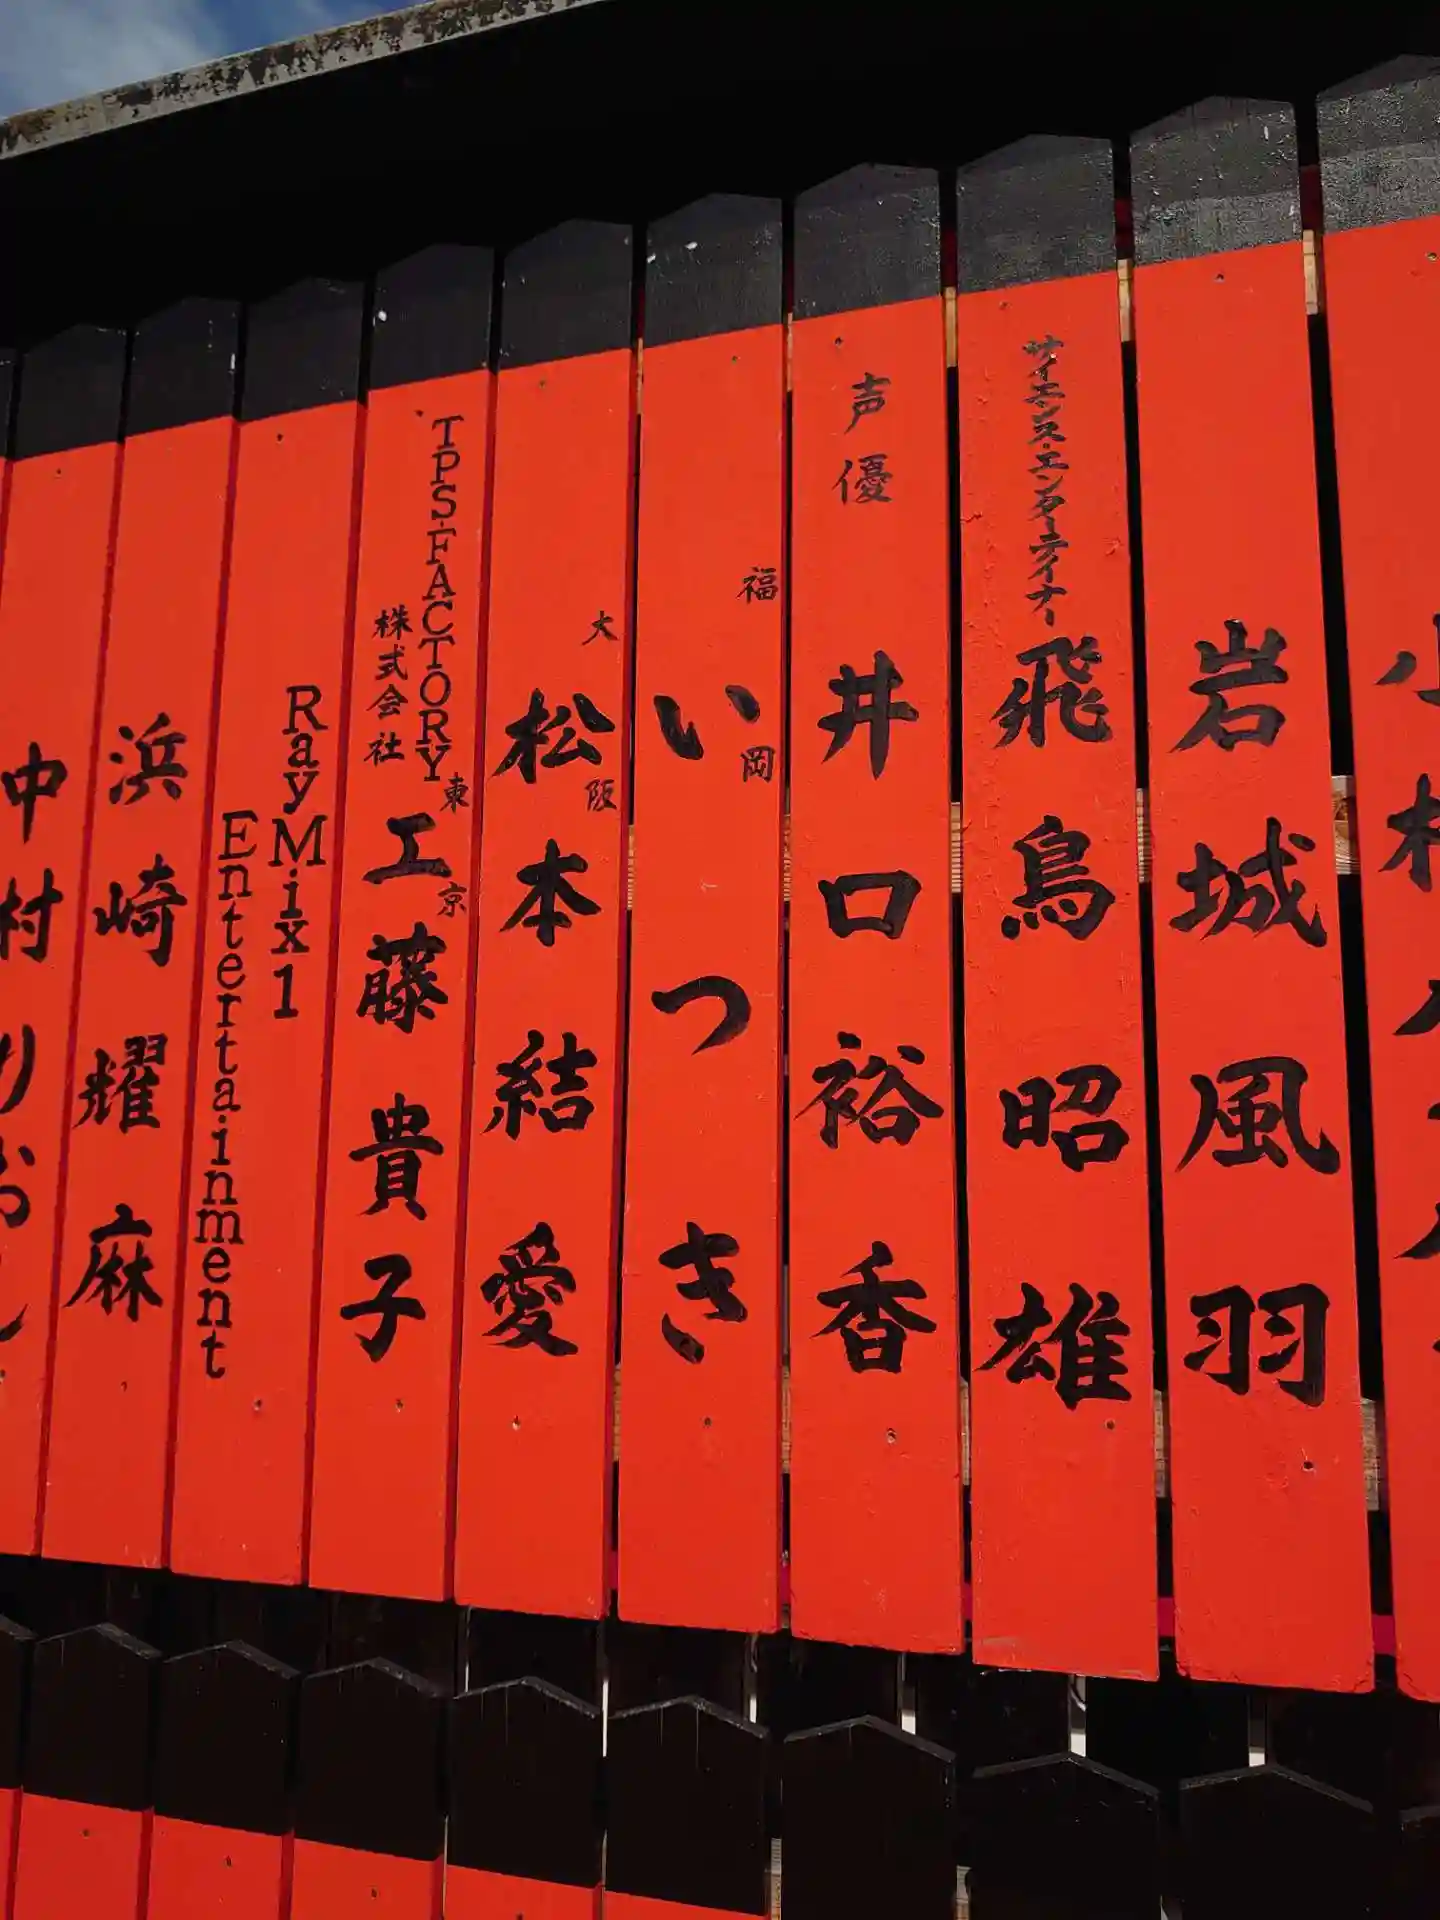 岩城風羽
サイエンス・エンターテイナー
飛鳥昭雄
声優
井口裕香
福岡
いつき
大阪
松本結愛
TPS-FACTORY
株式会社
東京
工藤貴子
RayMix1
Entertainment
浜崎耀麻
中村